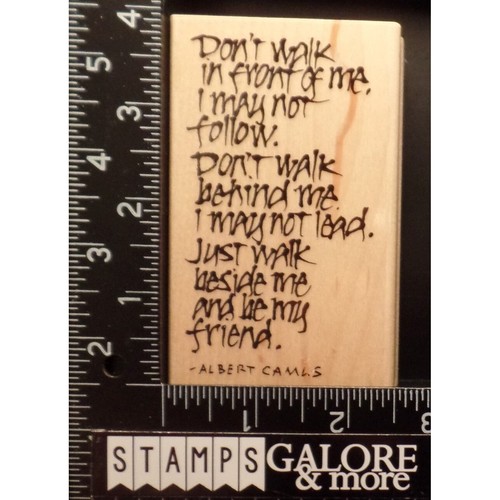 Don't walk
in front of me.
I may not
follow.
Don't walk
behind me
I may not lead.
Just walk
beside me
and be my
friend.
-ALBERT CAMUS
5
4
3
2
3
2
1
1
2
3
STAMPS GALORE
& more